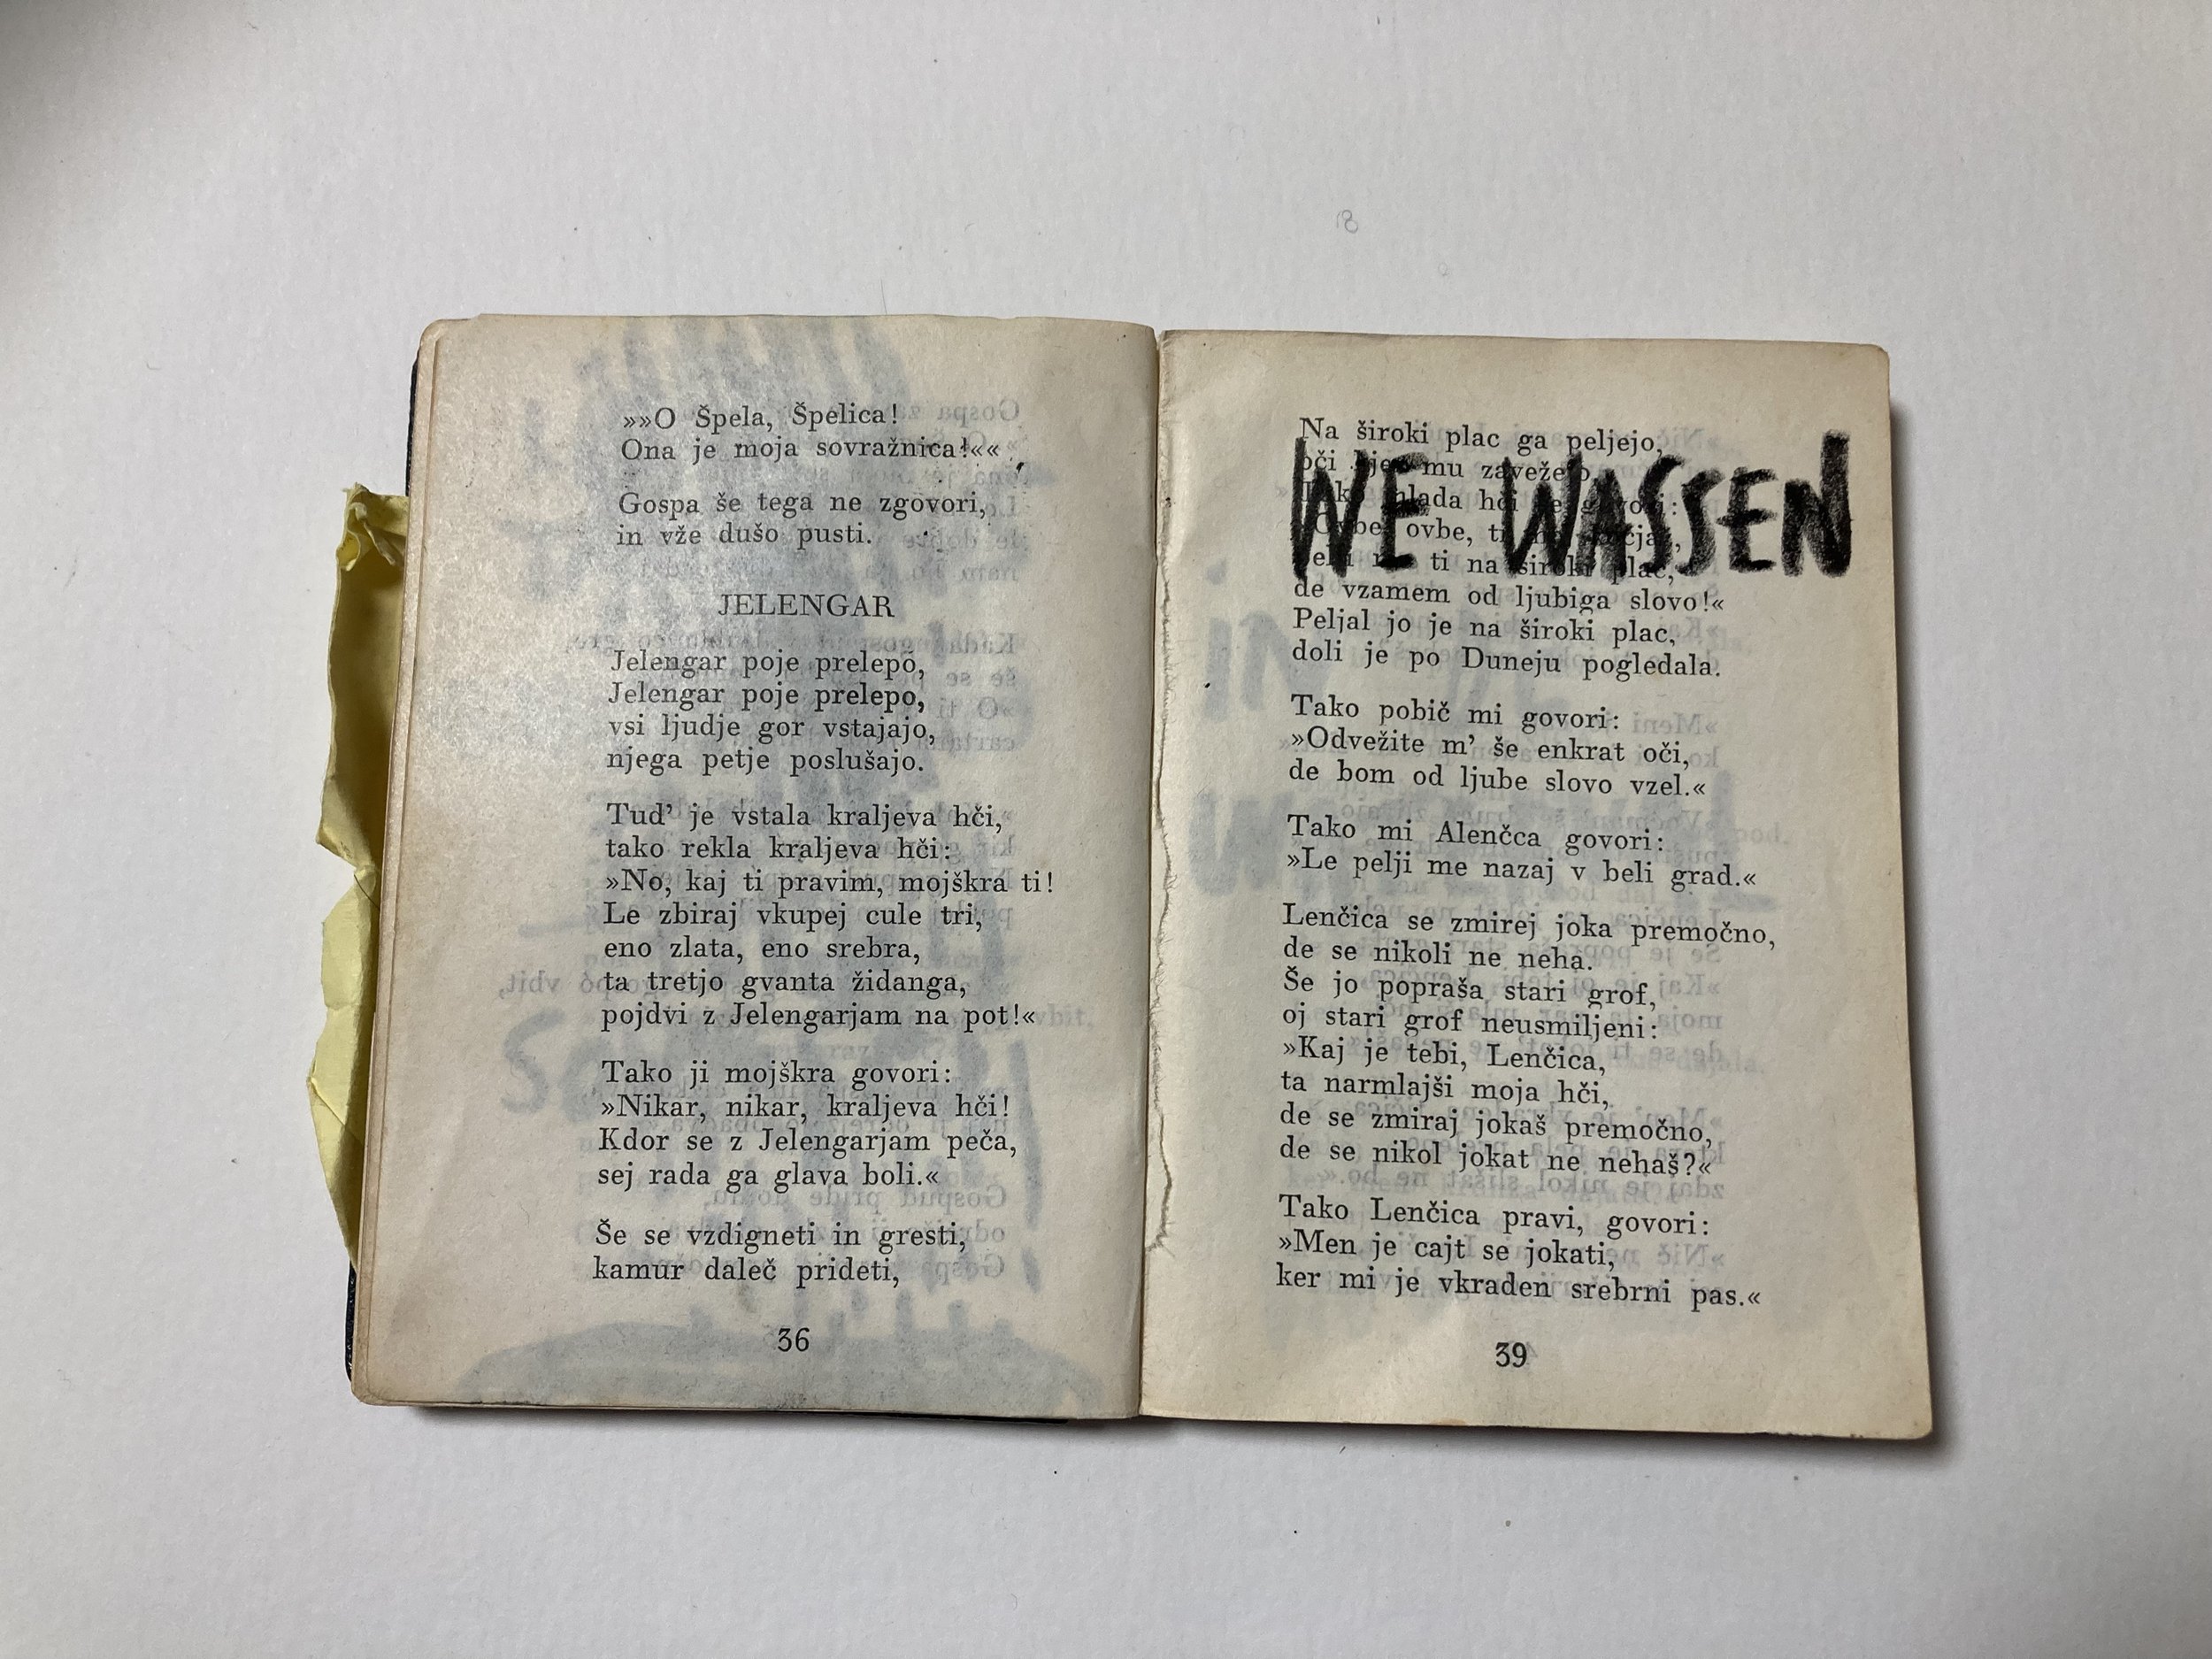 »»O Špela, Špelica!
Ona je moja sovražnica!««
Gospa še tega ne zgovori,
in vže dušo pusti.
JELENGAR
Jelengar poje prelepo,
Jelengar poje prelepo,
vsi ljudje gor vstajajo,
njega petje poslušajo.
Tud' je vstala kraljeva hči,
tako rekla kraljeva hči:
»No, kaj ti pravim, mojškra ti!
Le zbiraj vkupej cule tri,
eno zlata, eno srebra,
ta tretjo gvanta židanga,
pojdvi z Jelengarjam na pot!«
Tako ji mojškra govori:
»Nikar, nikar, kraljeva hči!
Kdor se z Jelengarjam peča,
sej rada ga glava boli.«
Še se vzdigneti in gresti,
kamur daleč prideti,
36
Na široki plac ga peljejo,
mu zavežejo.
mlada hči
ovbe,
ti na široki plac,
de vzamem od ljubiga slovo!«
Peljal jo je na široki plac,
doli je po Duneju pogledala.
Tako pobič mi govori:
»Odvežite m' še enkrat oči,
de bom od ljube slovo vzel.«
Tako mi Alenčca govori:
»Le pelji me nazaj v beli grad.«
Lenčica se zmirej joka premočno,
de se nikoli ne neha.
Še jo popraša stari grof,
oj stari grof neusmiljeni:
»Kaj je tebi, Lenčica,
ta narmlajši moja hči,
de se zmiraj jokaš premočno,
de se nikol jokat ne nehaš?«
Tako Lenčica pravi, govori:
»Men je cajt se jokati,
ker mi je vkraden srebrni pas.«
39
WE WASSEN